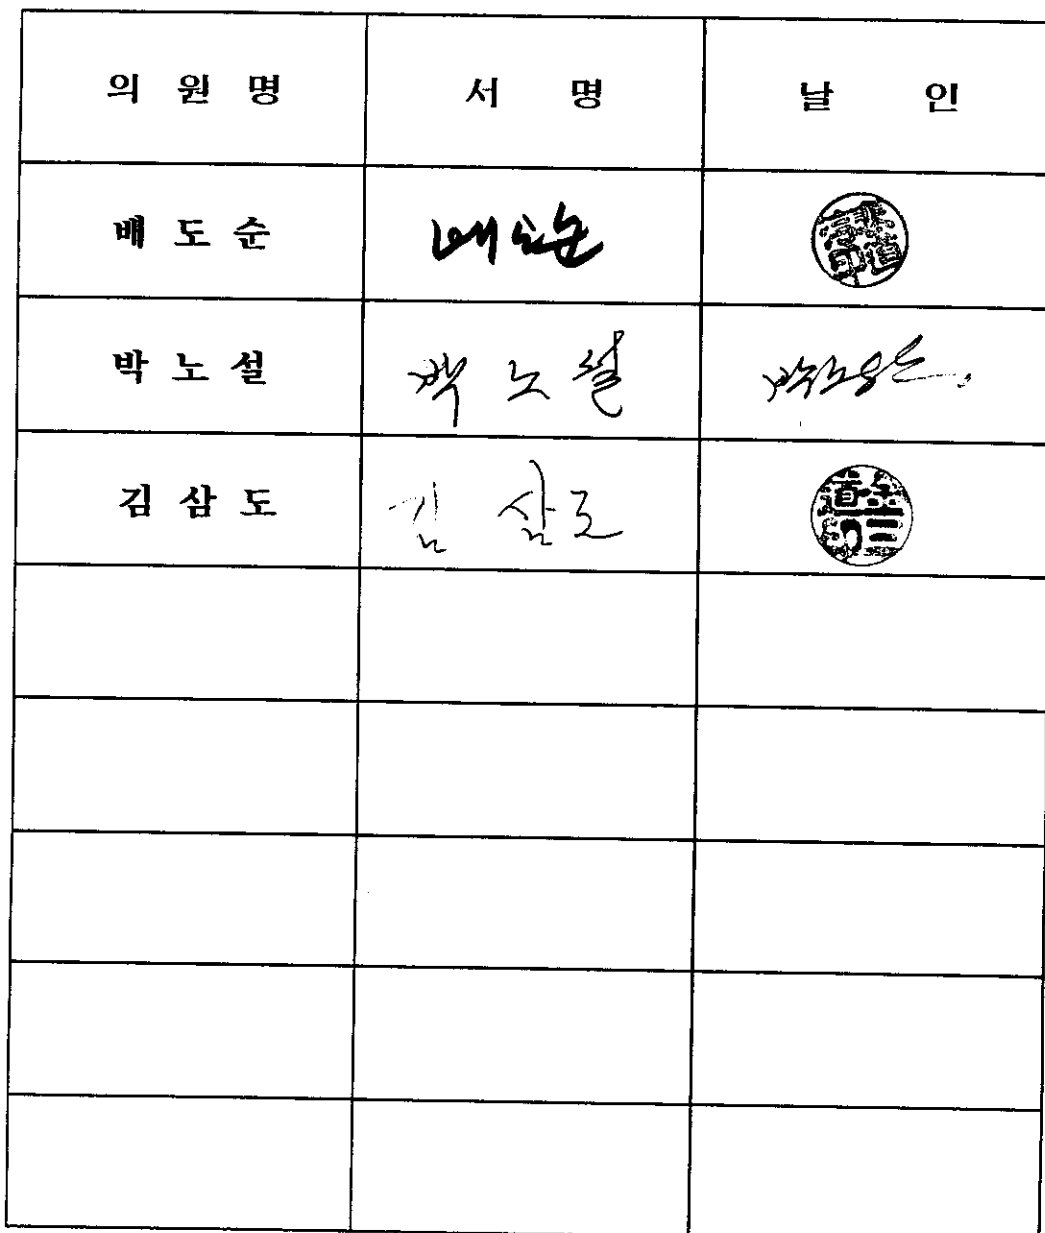 의 원 명 서 명 날 인
배 도 순 배도순
박 노 설 박 노 설
김 삼 도 김 삼도